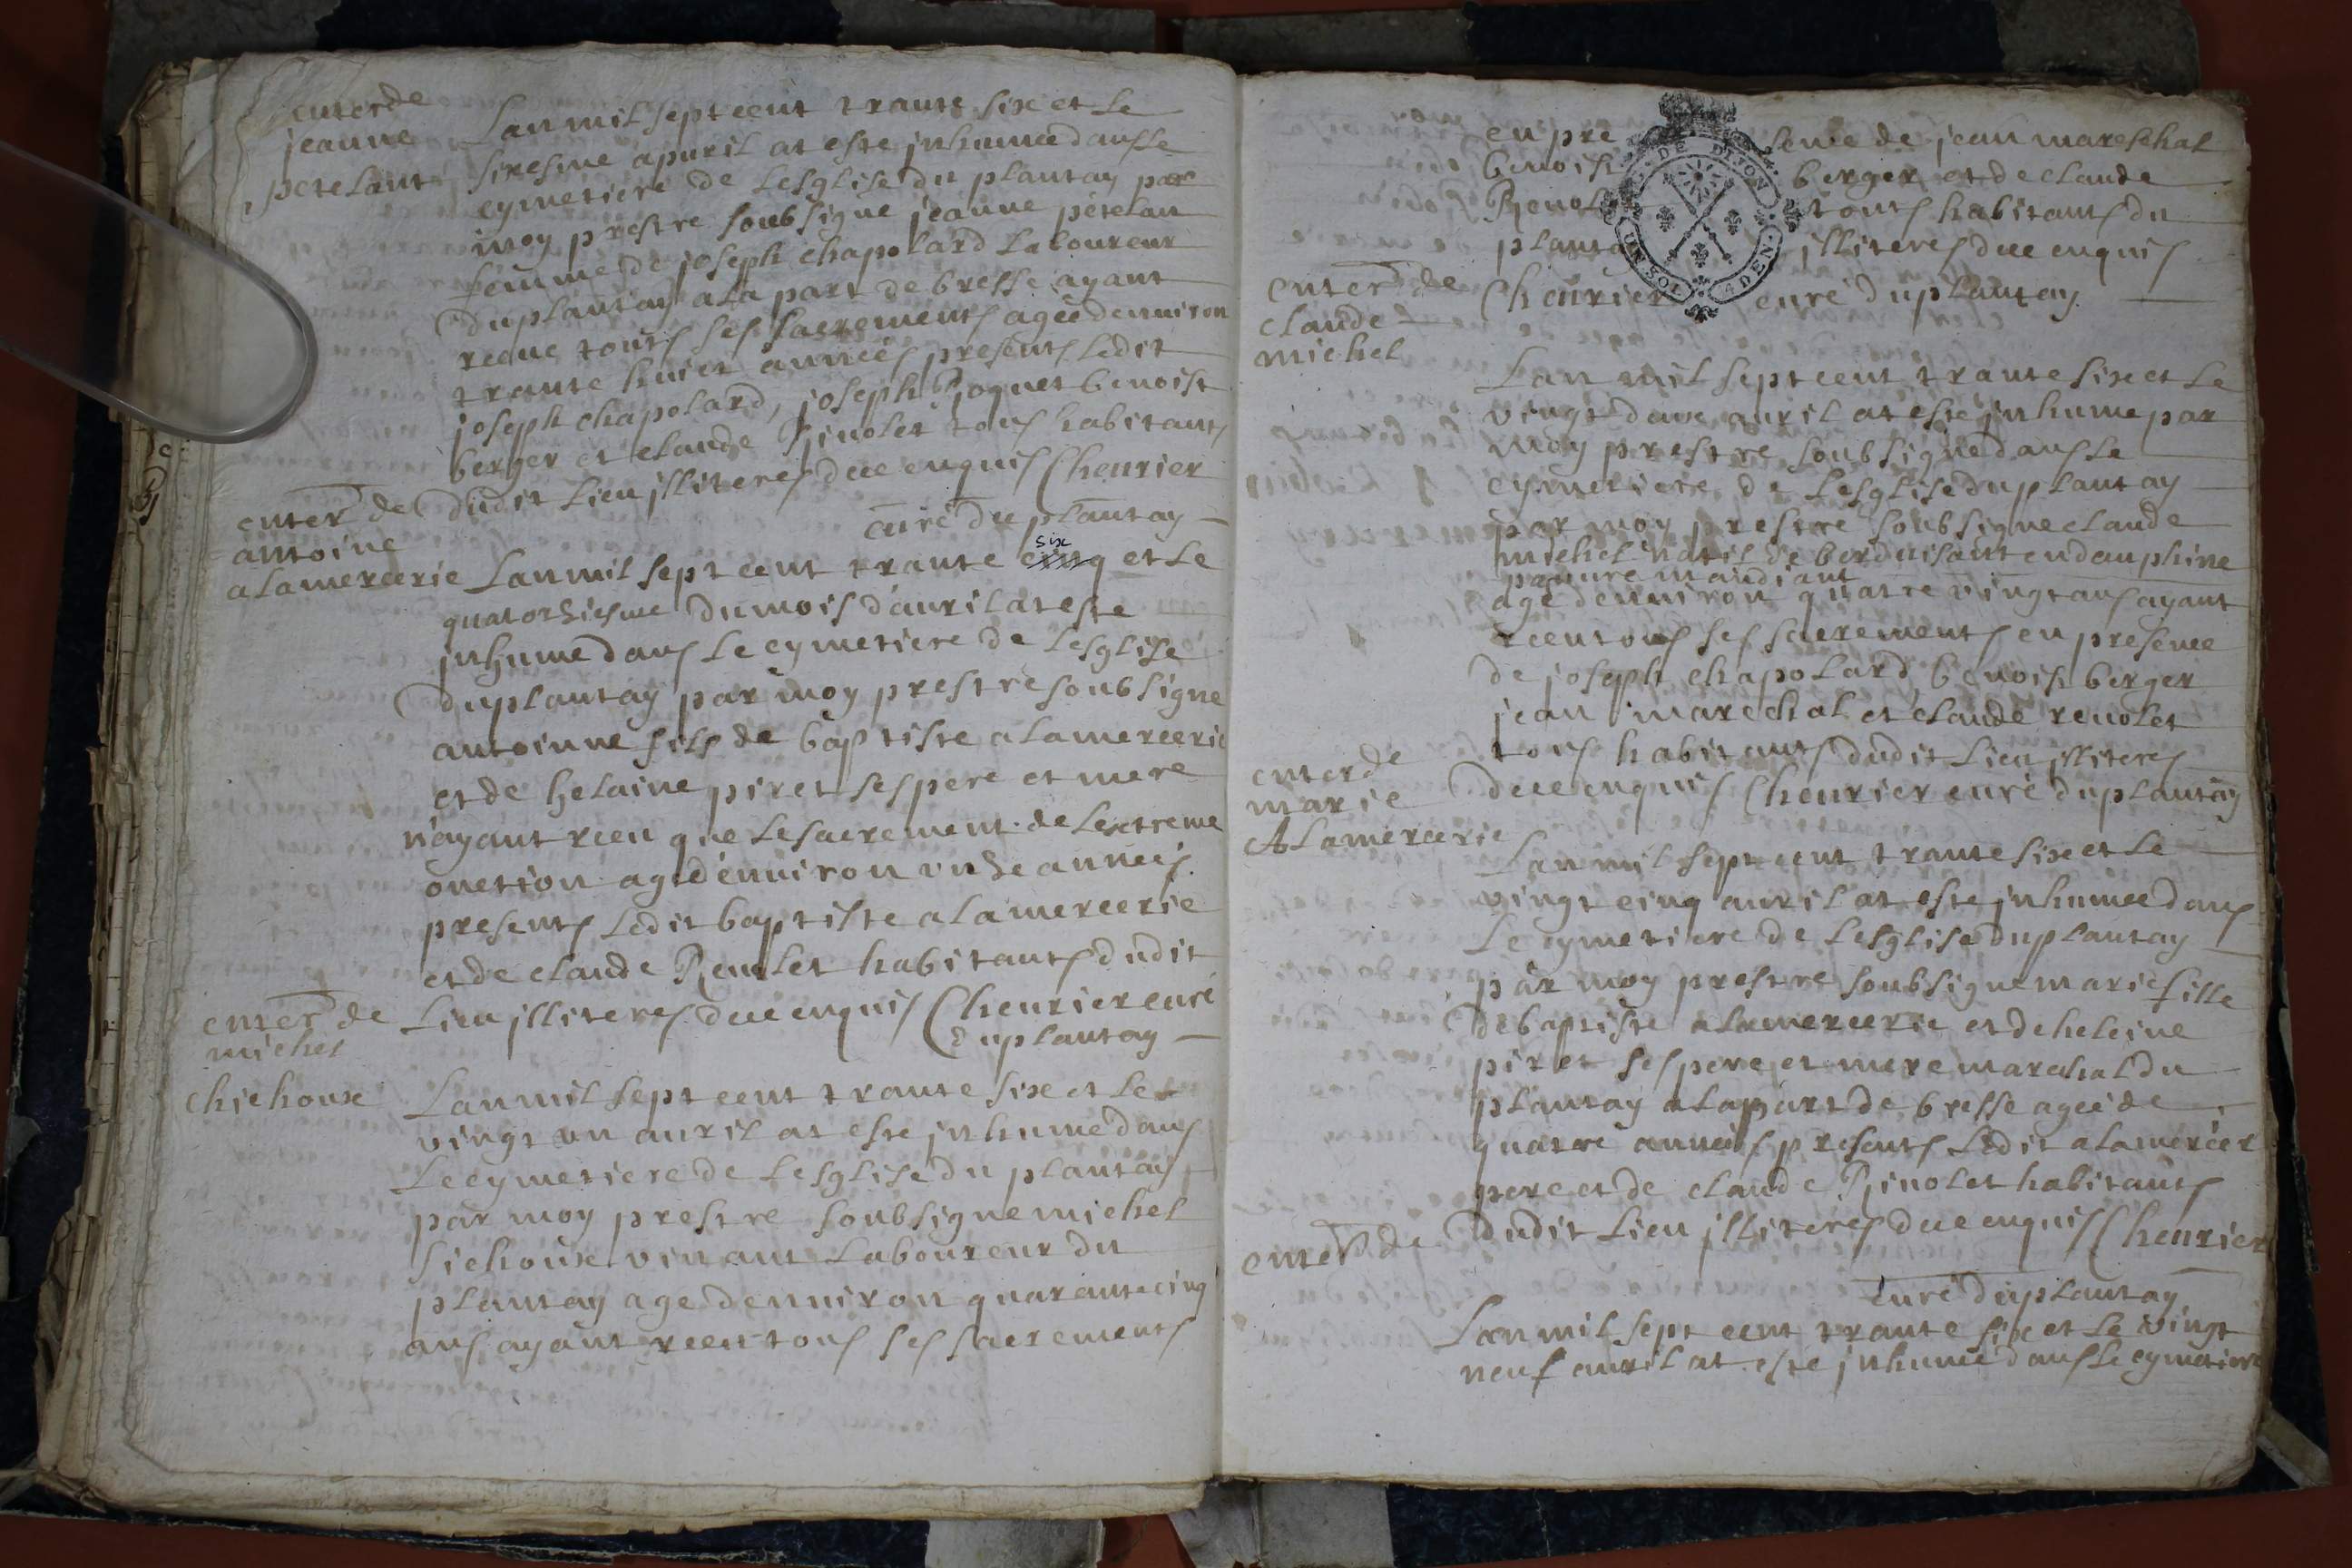 enter de
jeanne
petelant
Lan mil sept cent trante six et le
siresme apuril at este jnhumée dans le
cymetiere de Lesglise du plantay par
moy prestre soubsigne jeanne petelan
femme de joseph chapolard Laboureur
du plantay a la part de bresse ayant
receue touts ses sacrements agée denuiron
trante huict années presents ledit
joseph chapolard, joseph Roquet benoist
berger et claude Renolet tous habitants
dudit Lieu jlliteres dece enquis Cheurier
curé du plantay
enter de
antoine
alamercerie
Lan mil sept cent trante cinq six et Le
quatorhiesme du mois d'auril at este
jnhume dans Le cymetiere de Lesglise
duplantay par moy prestre soubsigne
antoinne fils de baptiste alamercerie
et de helaine piret ses pere et mere
n'ayant rceu que Le sacrement de Lextreme
onction agé denuiron unze années
presents Ledit baptiste alamercerie
et de claude Renolet habitants dudit
Lieu jlliteres dece enquis Cheurier curé
duplantay
enter de
michel
chichoux
Lan mil sept cent trante six et Le
vingt un auril at este jnhume dans
Le cymetiere de Lesglise du plantay
par moy prestre soubsigne michel
sichoux viuant Laboureur du
plantay age denuiron quarante cinq
ans ayant rceu tous ses sacrements
en pre sence de jean mareschal
benoist berger et de claude
Renol touts habitants du
planta jlliteres dece enquis
Cheurier curé du plantay.
DE DIJON
UN SOL 4 DEN
enter de
claude
michel
Lan mil sept cent trante six et Le
vingt deux auril at este jnhume par
moy prestre soubsigne dans Le
cymetiere de Lesglise du plantay
par moy prestre soubsigne claude
michel natif de borduisant en dauphine
pauure mandiant
age denuiron quatre vingt ans ayant
rceu tous ses sacrements en presence
de joseph chapolard benoist berger
jean marechal et claude renolet
tous habitants dudit Lieu jlliteres
dece enquis Cheurier curé du plantay
enter de
marie
Alamercerie
Lan mil sept cent trante six et Le
vingt cinq auril at este jnhumée dans
Le cymetiere de Lesglise du plantay
par moy prestre soubsigne marie fille
de baptiste alamercerie et de heleine
piret ses pere et mere marechal du
plantay a la part de bresse agée de
quatre années presents Ledit alamercer
pere et de claude Renolet habitants
dudit Lieu jlliteres dece enquis Cheurier
curé duplantay
enter de
Lan mil sept cent trante six et Le vingt
neuf auril at este jnhumé dans Le cymetiere